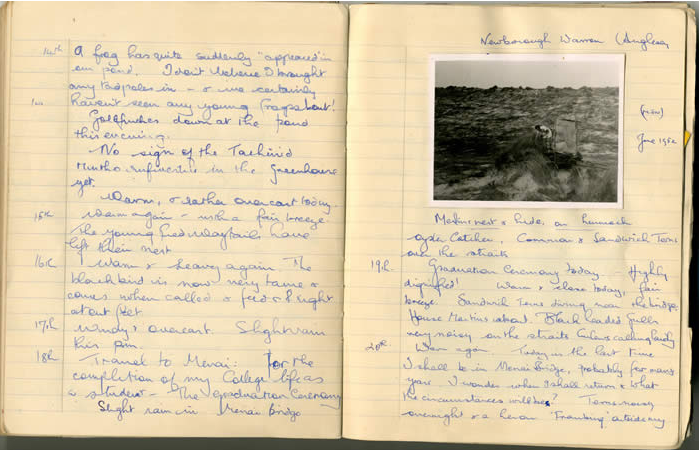 14th A frog has quite suddenly "appeared" in
our pond. I don't believe I brought
any tadpoles in - & we certainly
haven't seen any young frogs about!
Goldfinches down at the pond
this evening.
No sign of the Tachinid
in the Greenhouse
yet.
Warm, & rather overcast today.
15th Warm again - with a fair breeze
The young Pied Wagtails have
left their nest
16th Warm & heavy again. The
blackbird is now very tame &
comes when called & feeds right
at our feet.
17th Windy & overcast. Slight rain
this p.m.
18th Travel to Menai: For the
completion of my College life as
a student - The graduation Ceremony
Slight rain in Menai Bridge
Newborough Warren (Anglesey
June 1982
Merlins nest & hide, on hummock
Oyster Catcher, Common & Sandwich Terns
over the straits
19th Graduation Ceremony today - Highly
dignified! Warm & close today, fair
breeze. Sandwich Terns diving near the bridge.
House Martins about. Black headed Gulls
very noisy on the straits Curlews calling
20th Warm again. Today is the last time
I shall be in Menai Bridge, probably for many
years. I wonder when I shall return & what
the circumstances will be? Terns noisy
overnight & a heron "Franking" outside my